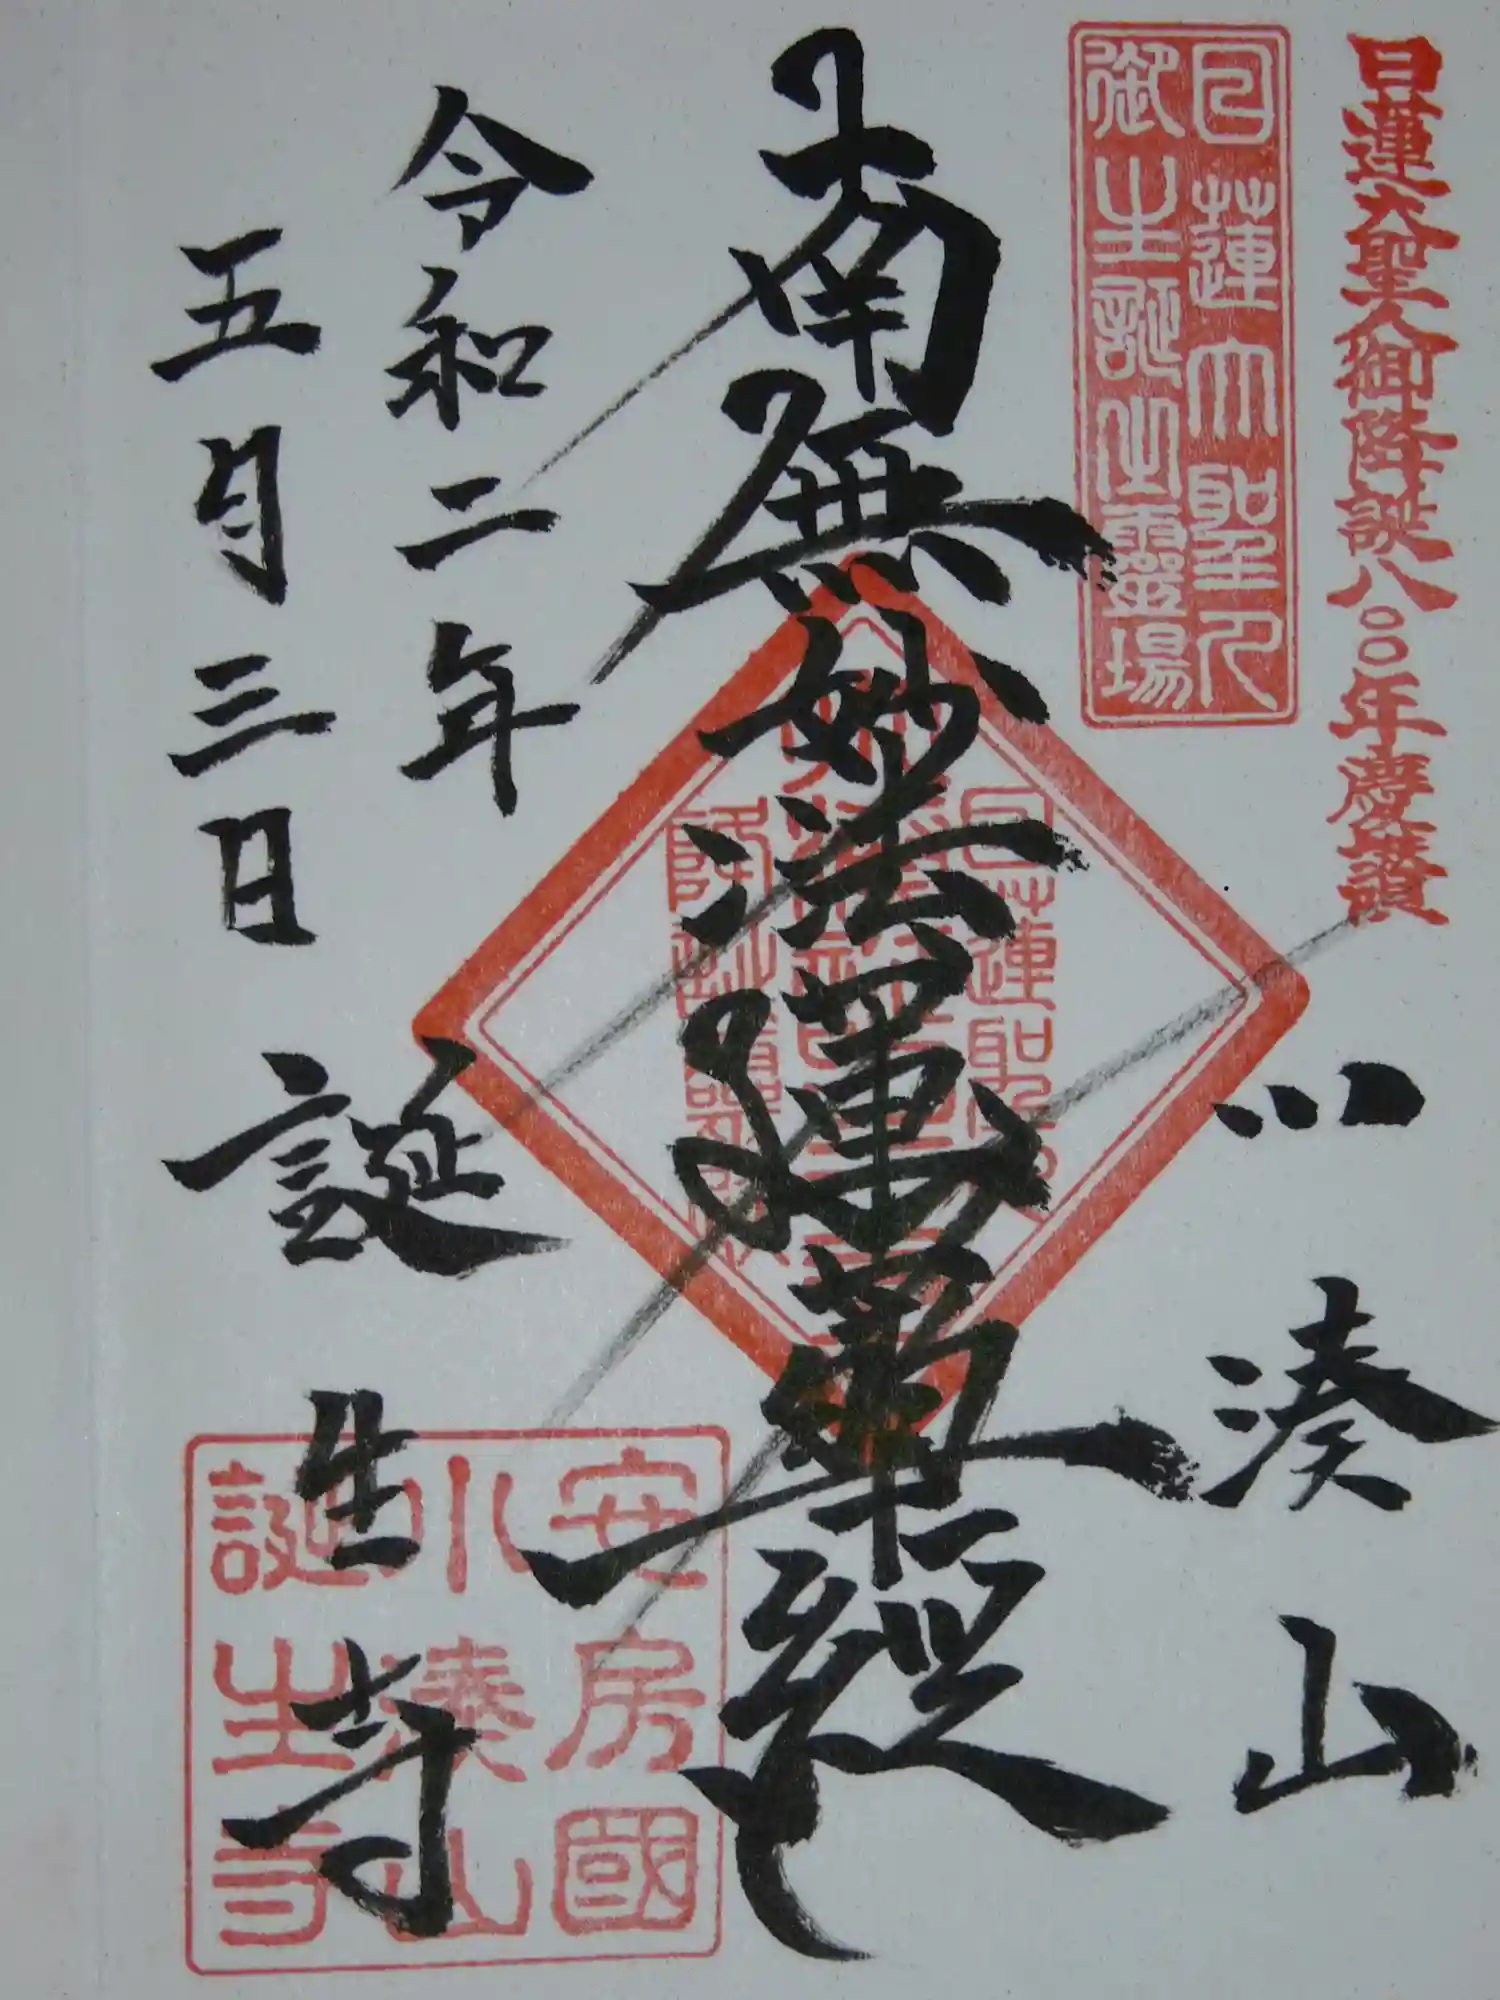 日蓮大聖人御降誕八〇〇年慶讃
日蓮大聖人
御生誕之霊場
小湊山
南無妙法蓮華経
令和二年
五月三日
誕生寺
安房國
小湊山
誕生寺